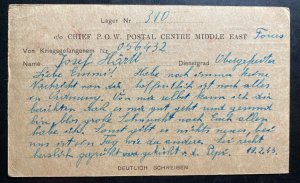 Lager Nr 310
c/o CHIEF P.O.W. POSTAL CENTRE MIDDLE EAST
Von Kriegsgefangenem No: 056432
Name Josef Härtl Dienstgrad Obergefreiter
Liebe Emmi! Habe noch immer keine
Nachricht von dir, hoffentlich ist noch alles
in Ordnung. Von mir selbst kann ich dir
berichten daß es mir gut geht und gesund
bin, bloß große Sehnsucht nach Euch allen
habe ich. Sonst gibt es nichts neues, bei
uns ist ein Tag wie der andere. Sei recht
herzlich gegrüßt und geküßt v. d. Pepi. 10.2.43.
DEUTLICH SCHREIBEN